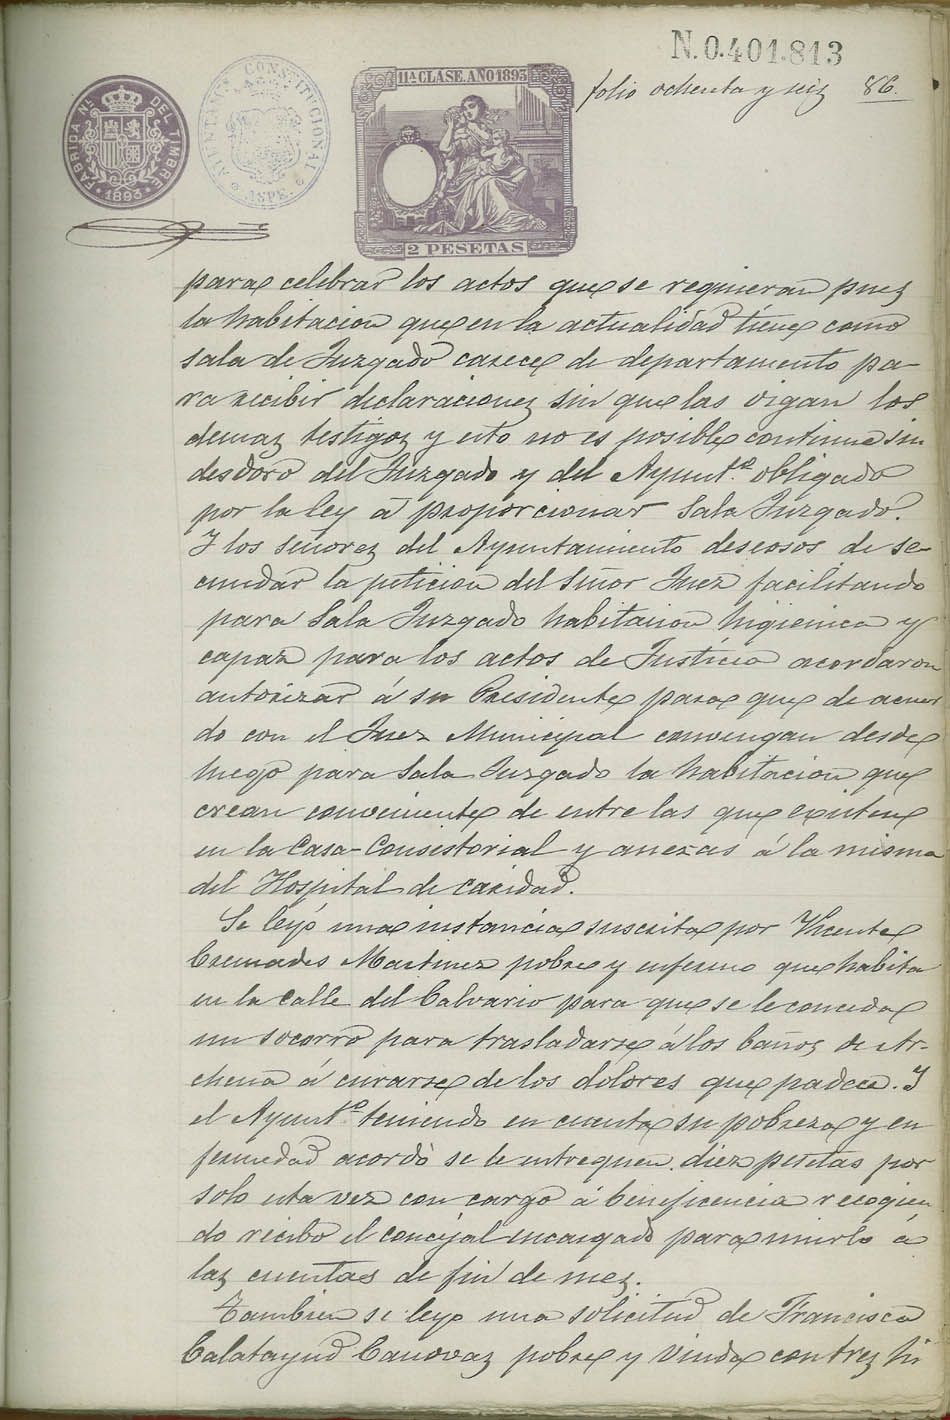 N.0.401.813
folio ochenta y seiz 86.
FABRICA Nal DEL TIMBRE
1893
AYUNTAMto CONSTITUCIONAL
ASPE.
11ª CLASE. AÑO 1893
2 PESETAS
para celebrar los actos que se requieran puez
la habitacion que en la actualidad tiene como
sala de Juzgado carece de departamento pa-
ra recibir declaracionez sin que las oigan los
demaz testigoz y esto no es posible continue sin
desdoro del Juzgado y del Ayuntº obligado
por la ley á proporcionar Sala Juzgado.
Y los señorez del Ayuntamiento deseosos de se-
cundar la peticion del Señor Juez facilitando
para Sala Juzgado habitacion higienica y
capaz para los actos de Justicia acordaron
autorizar á su Presidente para que de acuer
do con el Juez Municipal convengan desde
luego para Sala Juzgado la habitacion que
crean conveniente de entre las que existen
en la Casa-Consistorial y anexas á la misma
del Hospital de Caridad.
Se leyó una instancia suscrita por Vicente
Cremades Martinez pobre y enfermo que habita
en la Calle del Calvario para que se le conceda
un socorro para trasladarse á los bañoz de Ar-
chena á curarse de los dolores que padece. Y
el Ayuntº teniendo en cuenta su pobreza y en
fermedad acordó se le entreguen diez pesetas por
solo esta vez con cargo á beneficencia recogien
do recibo el concejal encargado para unirlo á
laz cuentas de fin de mez.
Tambien se leyo una solicitud de Francisca
Calatayud Canovaz pobre y viuda con trez hi